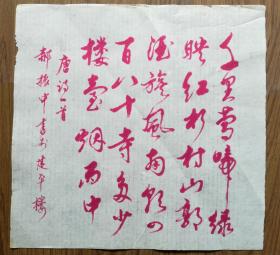 千里莺啼绿
映红水村山郭
酒旗风南朝四
百八十寺多少
楼臺烟雨中
唐诗一首
郝振中书于建平楼